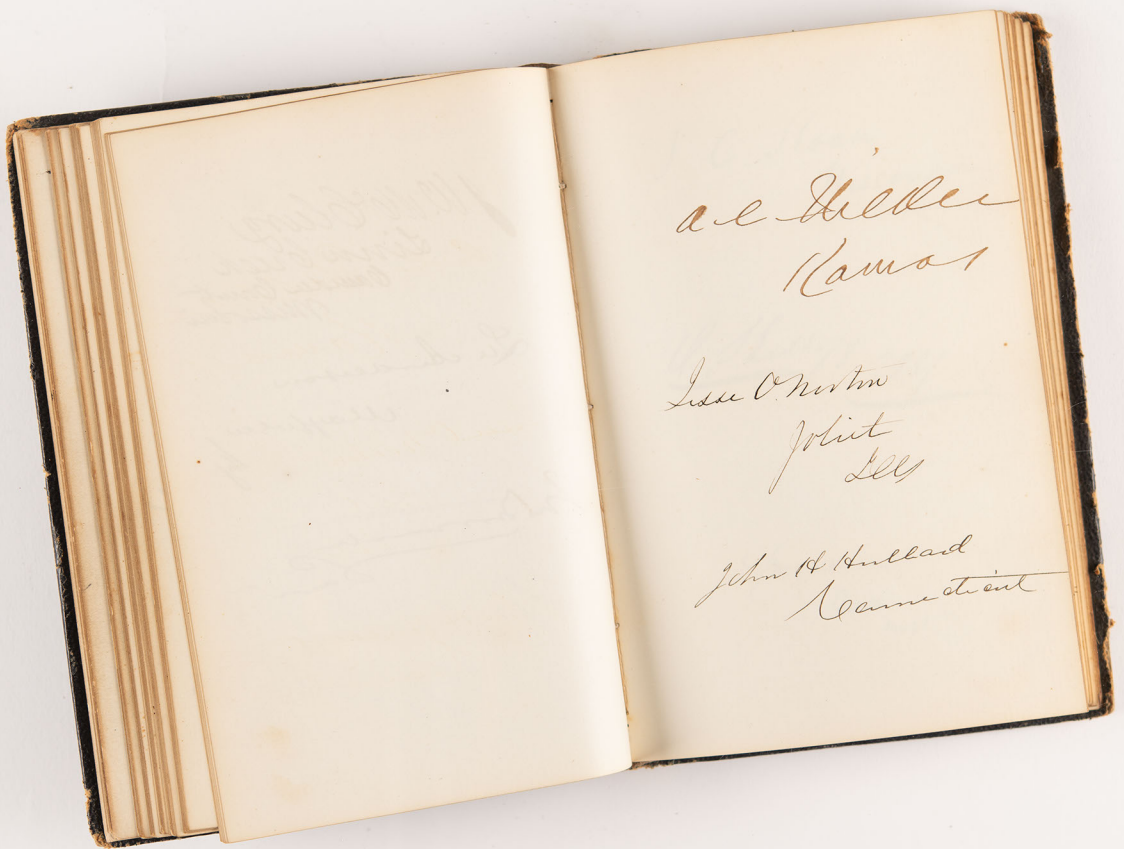 A C Wilder
Kansas
Jesse O. Norton
Joliet
Ills
John H Hubbard
Connecticut